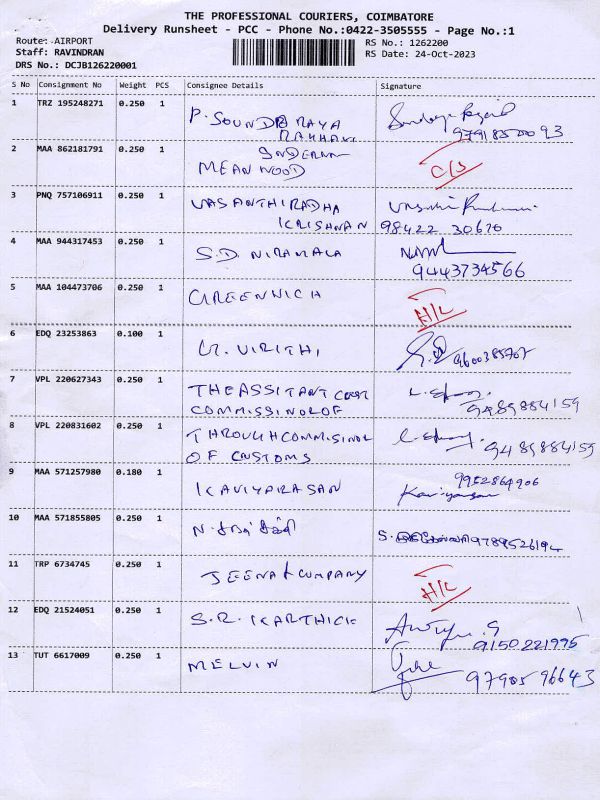 THE PROFESSIONAL COURIERS, COIMBATORE
Delivery Runsheet - PCC - Phone No.:0422-3505555 - Page No.:1
Route: AIRPORT RS No.: 1262200
Staff: RAVINDRAN RS Date: 24-Oct-2023
DRS No.: DCJB126220001
S No Consignment No Weight PCS Consignee Details Signature
1 TRZ 195248271 0.250 1 P. SOUNDRA RAYA
2 MAA 862181791 0.250 1 MEANWOOD C/S
3 PNQ 757106911 0.250 1 VASANTHIRADHA
KRISHNAN 98422 30670
4 MAA 944317453 0.250 1 S.D. NIRAMALA
9443734566
5 MAA 104473706 0.250 1 GREENWICH H/L
6 EDQ 23253863 0.100 1 G. VIRITHI,
7 VPL 220627343 0.250 1 THE ASSITANT
COMMISSINOL OF 9489884159
8 VPL 220831602 0.250 1 THROUGH COMMISINOL
OF CUSTOMS 9489884159
9 MAA 571257980 0.180 1 KAVIYARASAN 9952864906
10 MAA 571855805 0.250 1
11 TRP 6734745 0.250 1 JEENA & COMPANY H/L
12 EDQ 21524051 0.250 1 S.R. KARTHICK
9150221995
13 TUT 6617009 0.250 1 MELVIN
97905 96643